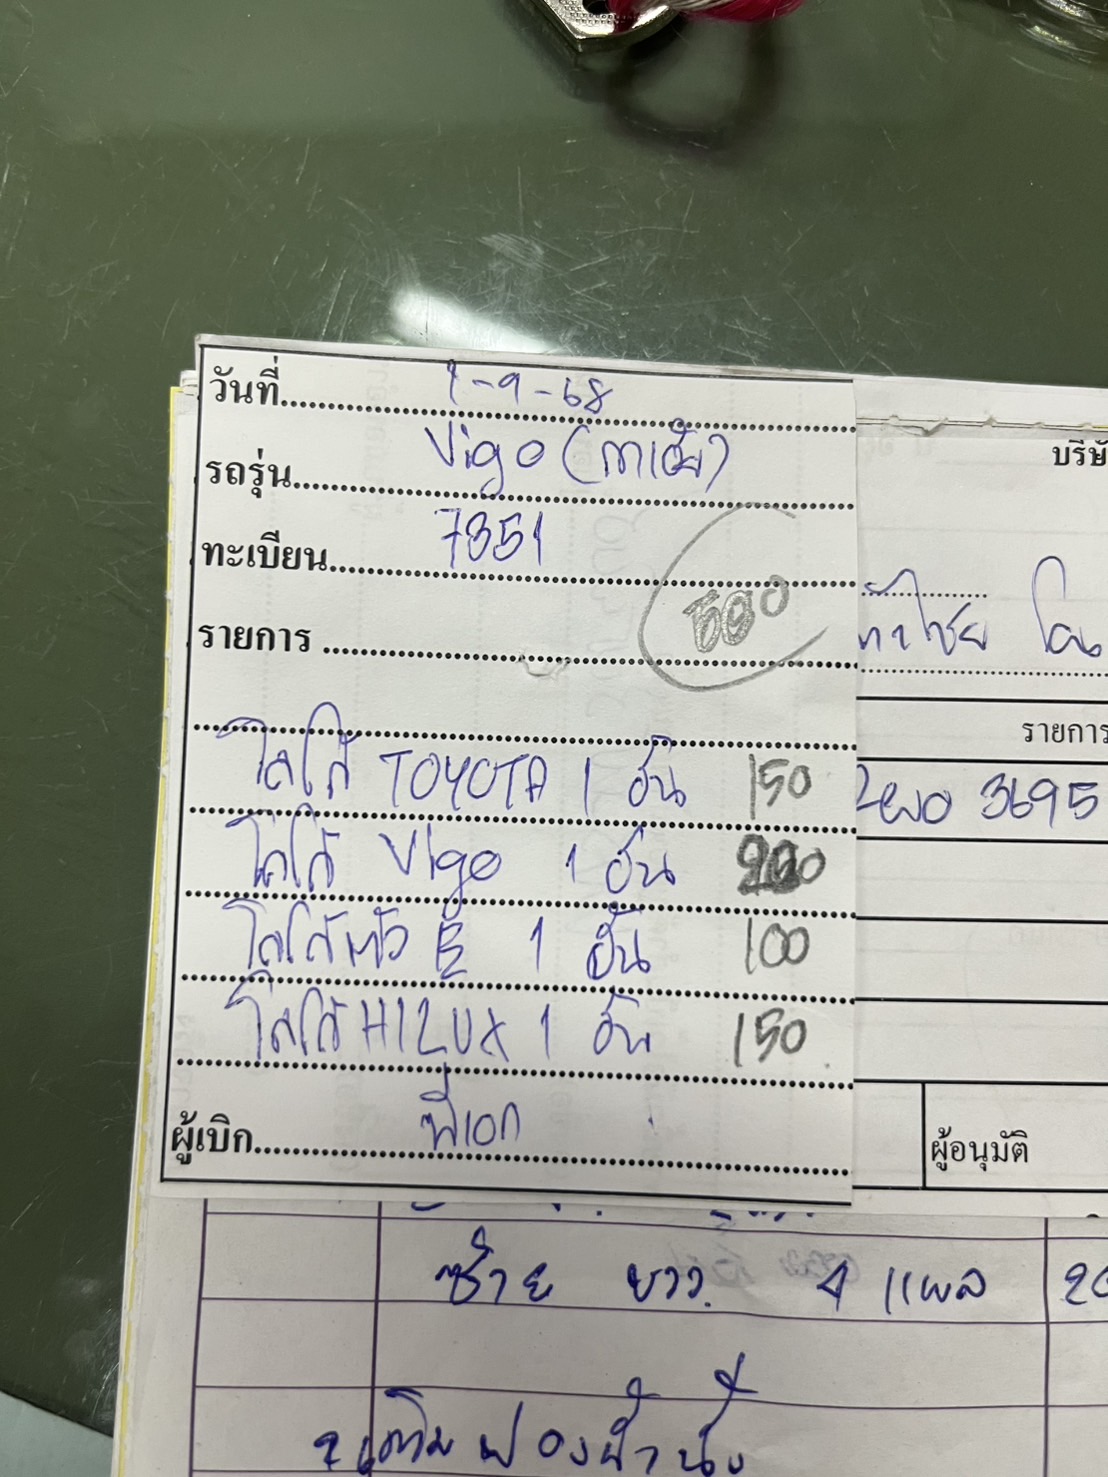 วันที่ 1-9-68
รถรุ่น Vigo
ทะเบียน 7351
รายการ
500
โลโก้ TOYOTA 1 อัน 150
โลโก้ Vigo 1 อัน
โลโก้ตัว E 1 อัน 100
โลโก้ HILUX 1 อัน 150
ผู้เบิก พี่เอก
บริษั
รายการ
3695
ผู้อนุมัติ
ซ้าย ขวา 4 แผล